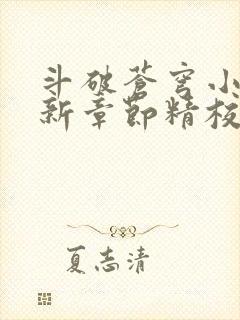 斗破苍穹小
新章节精校
夏志清